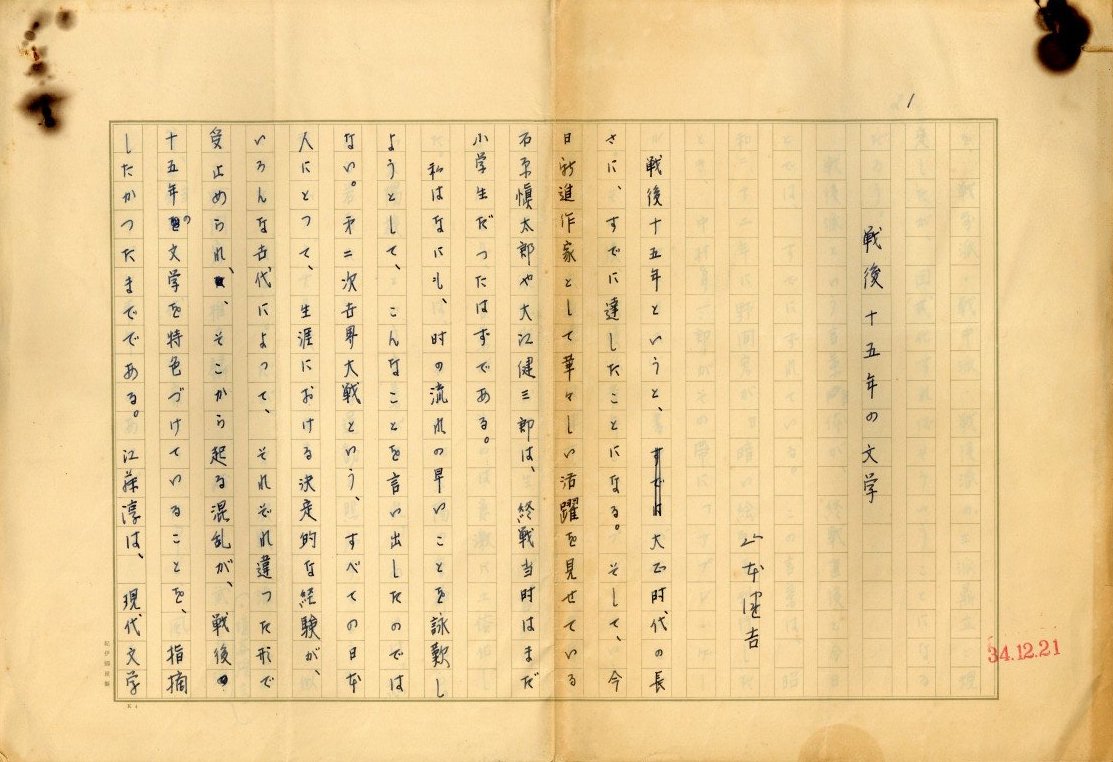 1
戦後十五年の文学
山本健吉
戦後十五年というと、大正時代の長
さに、すでに達したことになる。そして、今
日新進作家として華々しい活躍を見せている
石原慎太郎や大江健三郎は、終戦当時はまだ
小学生だつたはずである。
私はなにも、時の流れの早いことを詠歎し
ようとして、こんなことを言い出したのでは
ない。第二次世界大戦という、すべての日本
人にとつて、生涯における決定的な経験が、
いろんな世代によつて、それぞれ違つた形で
受止められ、そこから起る混乱が、戦後の
十五年の文学を特色づけていることを、指摘
したかつたまでである。江藤淳は、現代文学
34.12.21
紀伊國屋製